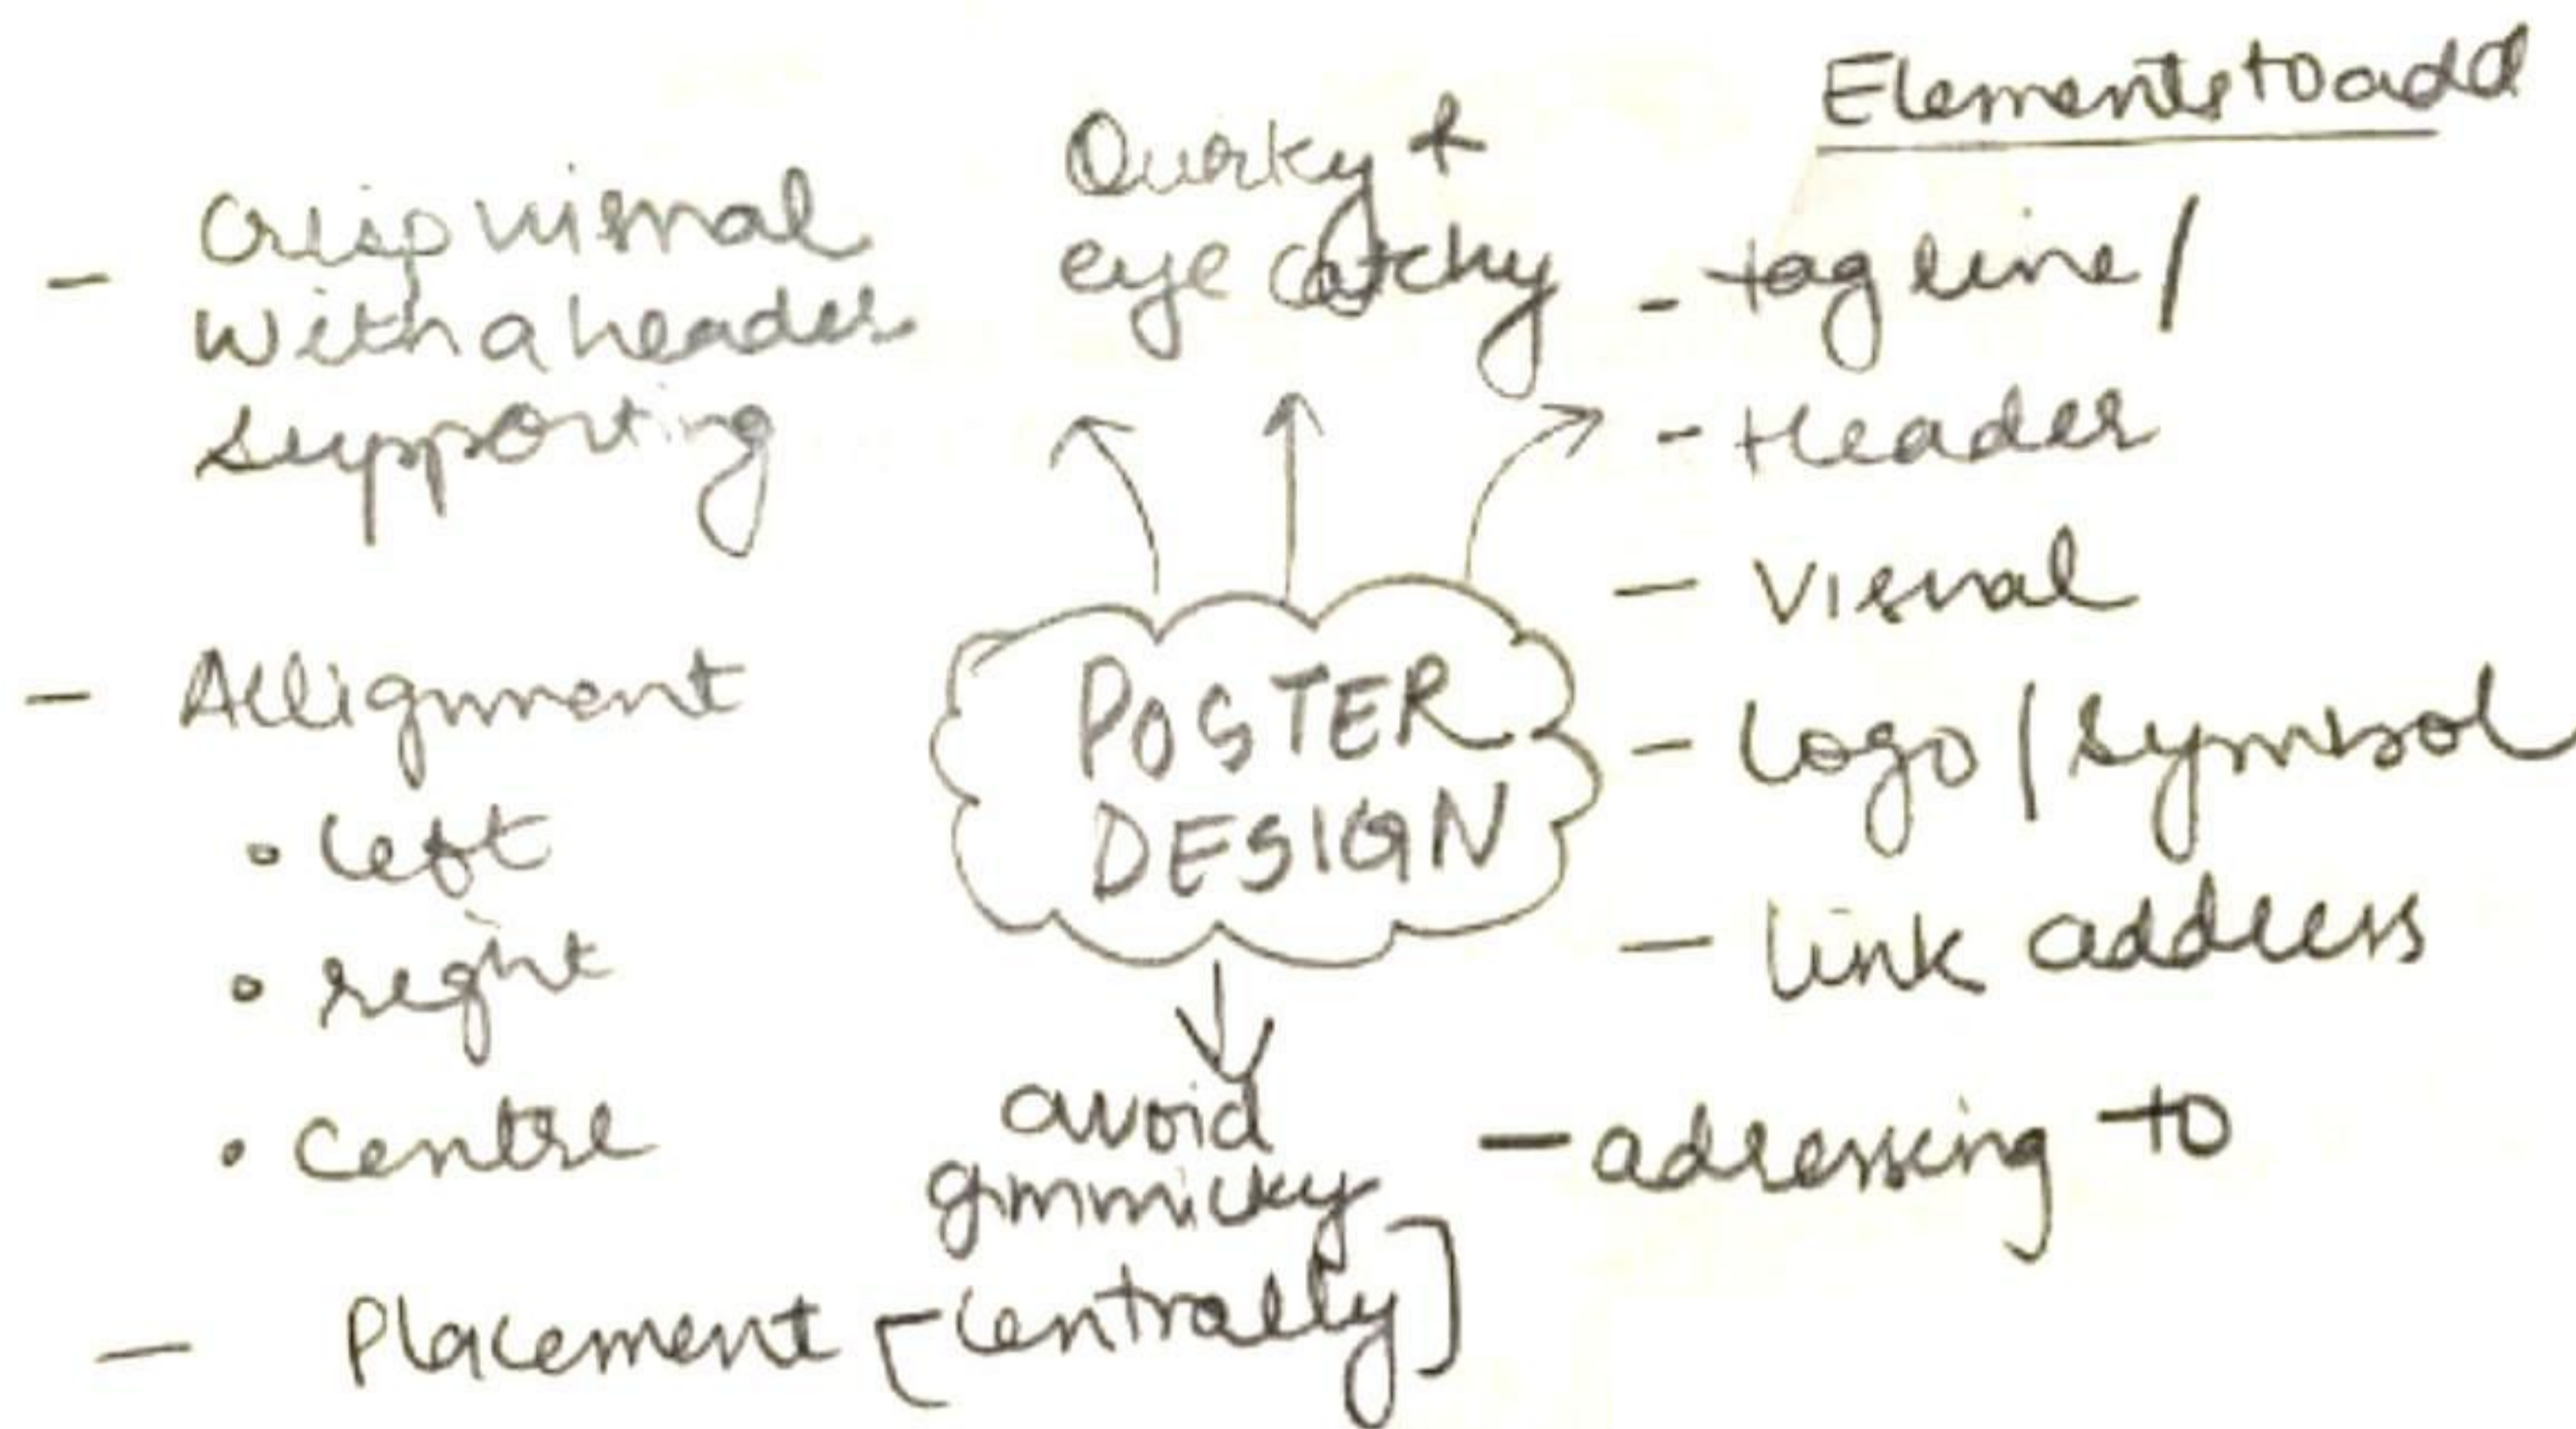 - Crisp visual
with a header
supporting
- Allignment
• left
• right
• centre
- Placement [centrally]
Quirky &
eye catchy
POSTER
DESIGN
avoid
gimmicky
Elements to add
- tag line /
- Header
- Visual
- logo / symbol
- link address
- adressing to